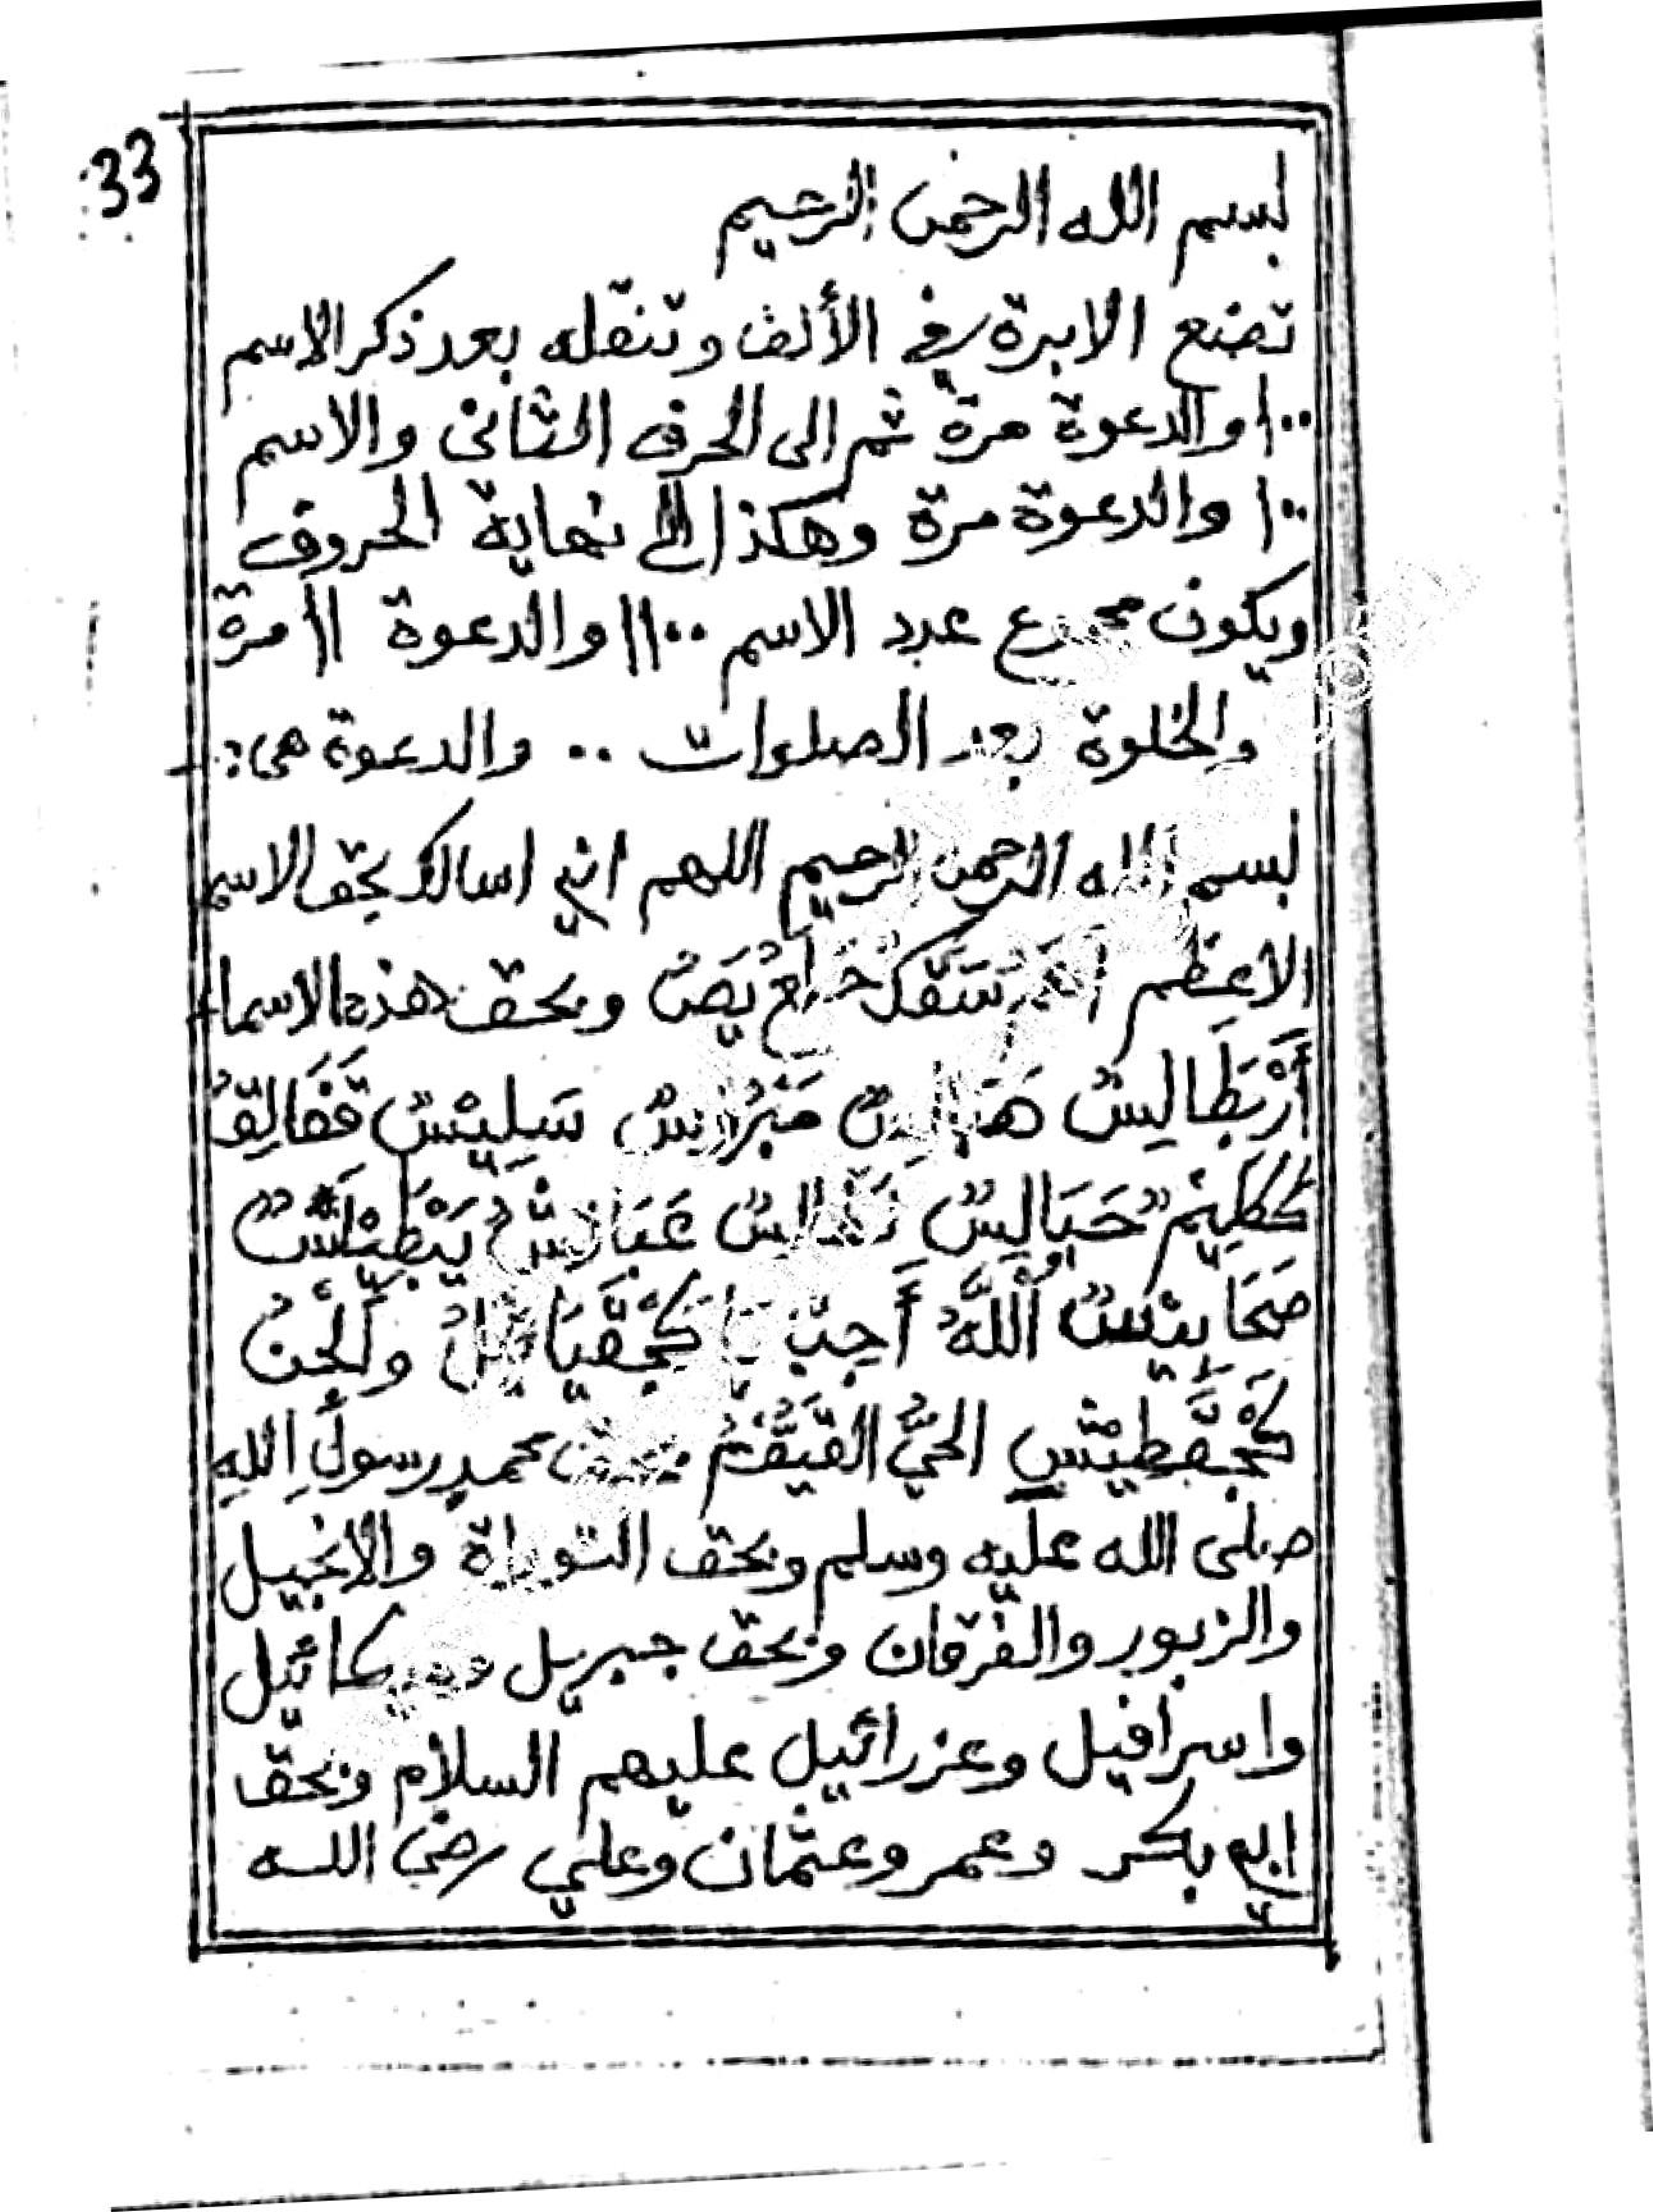 33
بسم الله الرحمن الرحيم
تضع الابرة في الألف وتنقله بعد ذكر الاسم
١٠٠ والدعوة مرة ثم الى الحرف الثاني والاسم
١٠٠ والدعوة مرة وهكذا الى نهاية الحروف
ويكون مجموع عدد الاسم ١١٠٠ والدعوة ١١ مرة
والخلوة بعد الصلوات .. والدعوة هى :-
بسم الله الرحمن الرحيم اللهم اني اسالك بحق الاسم
الاعظم يَصٌ وبحق هذه الاسماء
أَرْبَطَالِيسٌ سَلِيْسٌ قَفَالِقٌ
حَيَالِيسٌ
اَللَّهُ أَجِبْ يا وَالْجِنُ
الحَيُّ القَيُّومُ محمدٍ رسولِ اللهِ
صلى الله عليه وسلم وبحق التوراة والانجيل
والزبور والفرقان وبحق جبريل وميكائيل
واسرافيل وعزرائيل عليهم السلام وبحق
ابي بكر وعمر وعثمان وعلي رضى الله